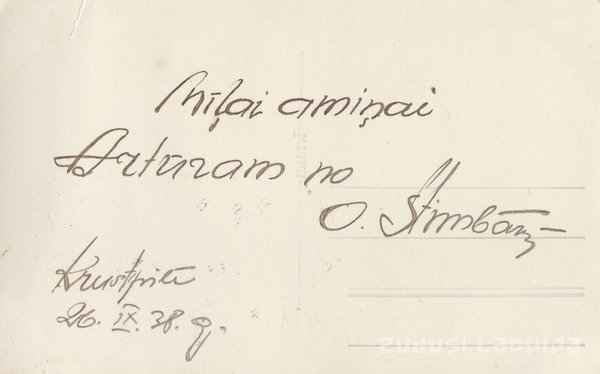 Mīļai amiņai
Artūram no
O. Štimbārg
Krustpilī
26. IX. 38. g.
Zudusī Latvija